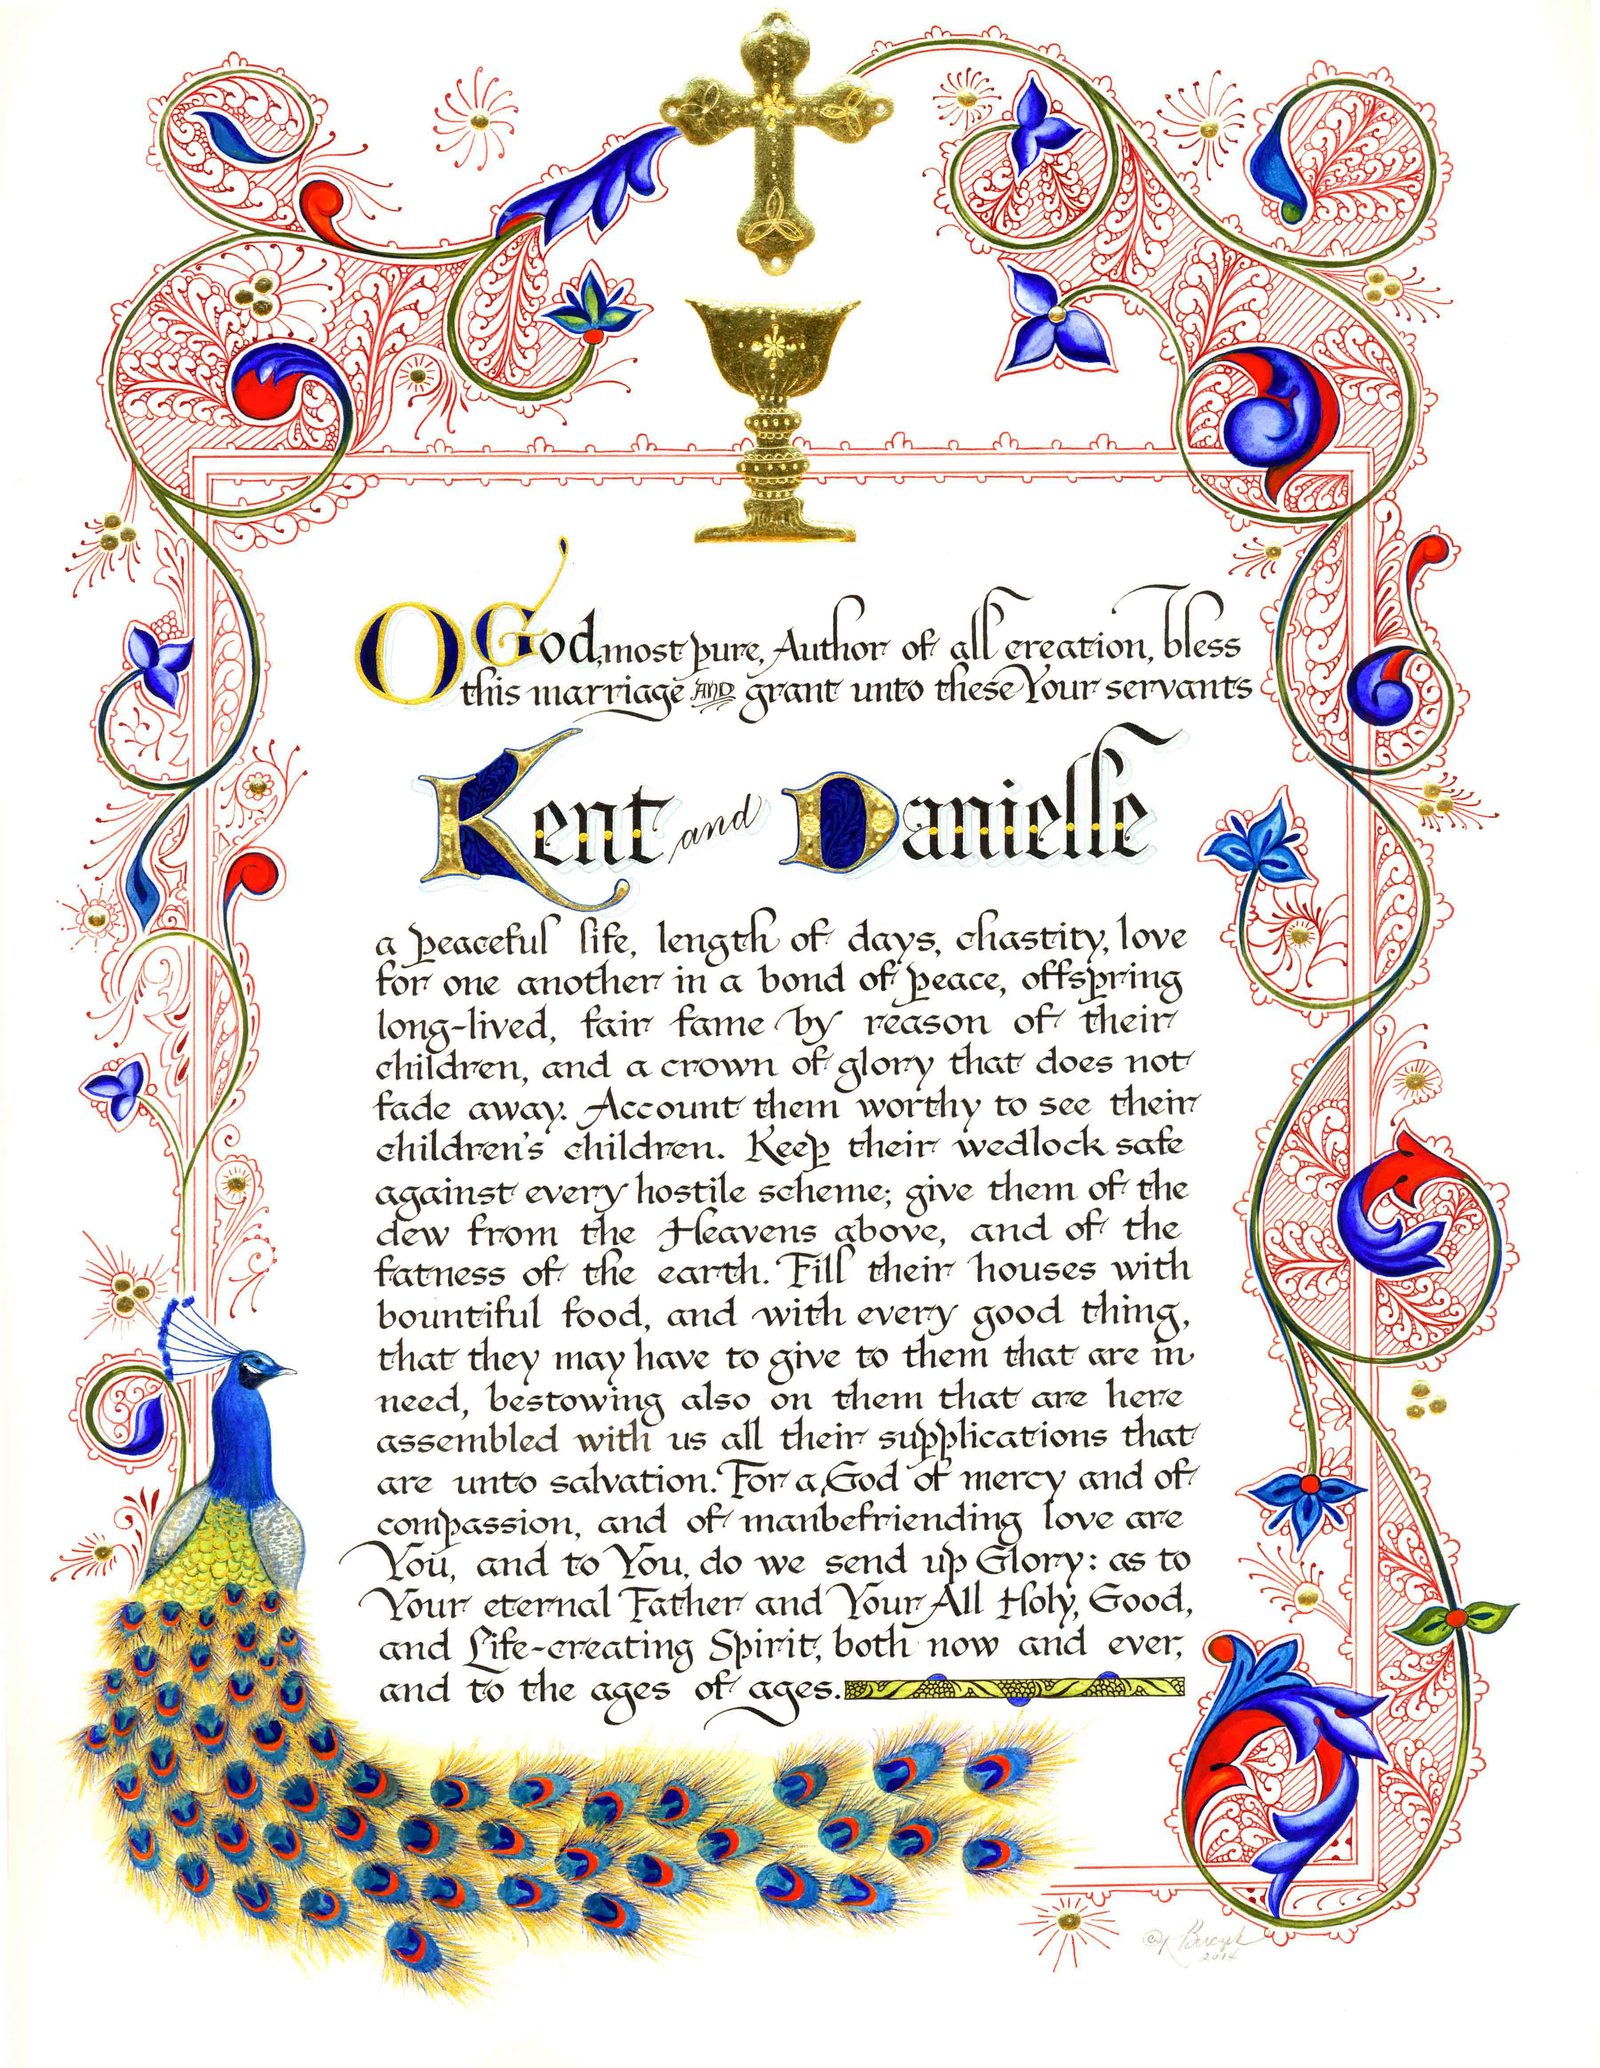 O God, most pure, Author of all creation, bless
this marriage AND grant unto these Your servants
Kent and Danielle
a peaceful life, length of days, chastity, love
for one another in a bond of peace, offspring
long-lived, fair fame by reason of their
children, and a crown of glory that does not
fade away. Account them worthy to see their
children's children. Keep their wedlock safe
against every hostile scheme; give them of the
dew from the Heavens above, and of the
fatness of the earth. Fill their houses with
bountiful food, and with every good thing,
that they may have to give to them that are in
need, bestowing also on them that are here
assembled with us all their supplications that
are unto salvation. For a God of mercy and of
compassion, and of manbefriending love are
You, and to You, do we send up Glory: as to
Your eternal Father and Your All Holy, Good,
and Life-creating Spirit, both now and ever,
and to the ages of ages.
2014